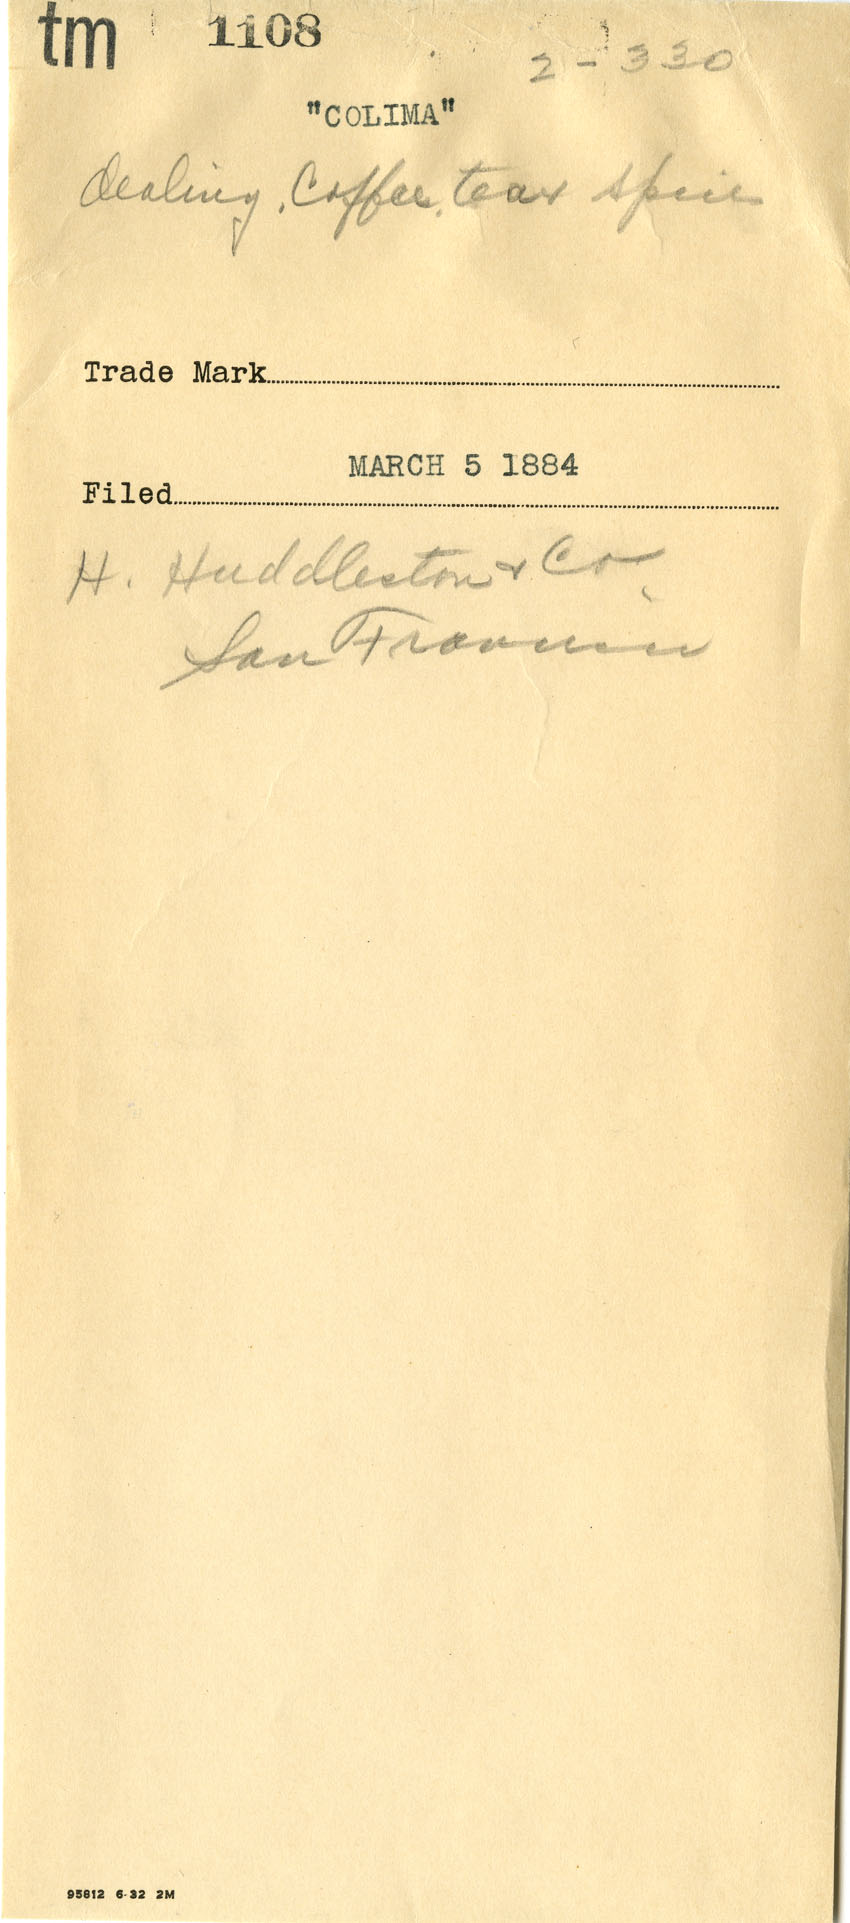 tm 1108
2-330
"COLIMA"
dealing, Coffee, tea & Spices
Trade Mark
MARCH 5 1884
Filed
H. Huddleston & Co.
San Francisco
95812 6-32 2M